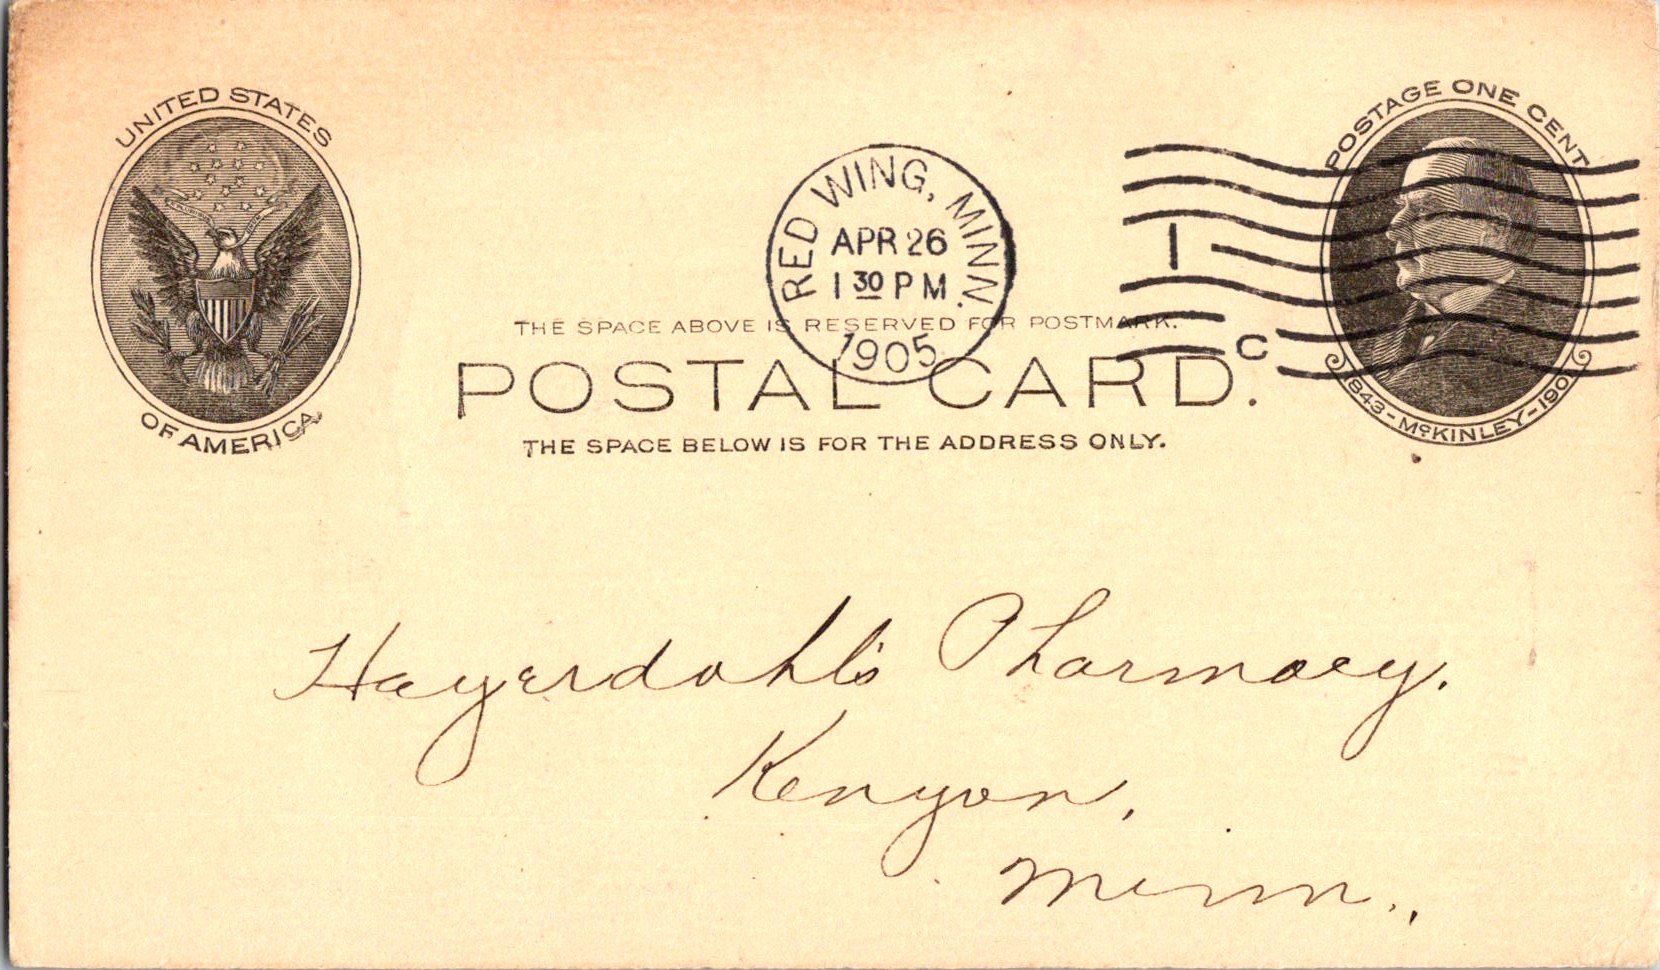 UNITED STATES
OF AMERICA
RED WING, MINN.
APR 26
1 30 PM
1905
1
C
POSTAGE ONE CENT
1843-McKINLEY-1901
THE SPACE ABOVE IS RESERVED FOR POSTMARK.
POSTAL CARD.
THE SPACE BELOW IS FOR THE ADDRESS ONLY.
Hagerdahl's Pharmacy.
Kenyon,
Minn.,